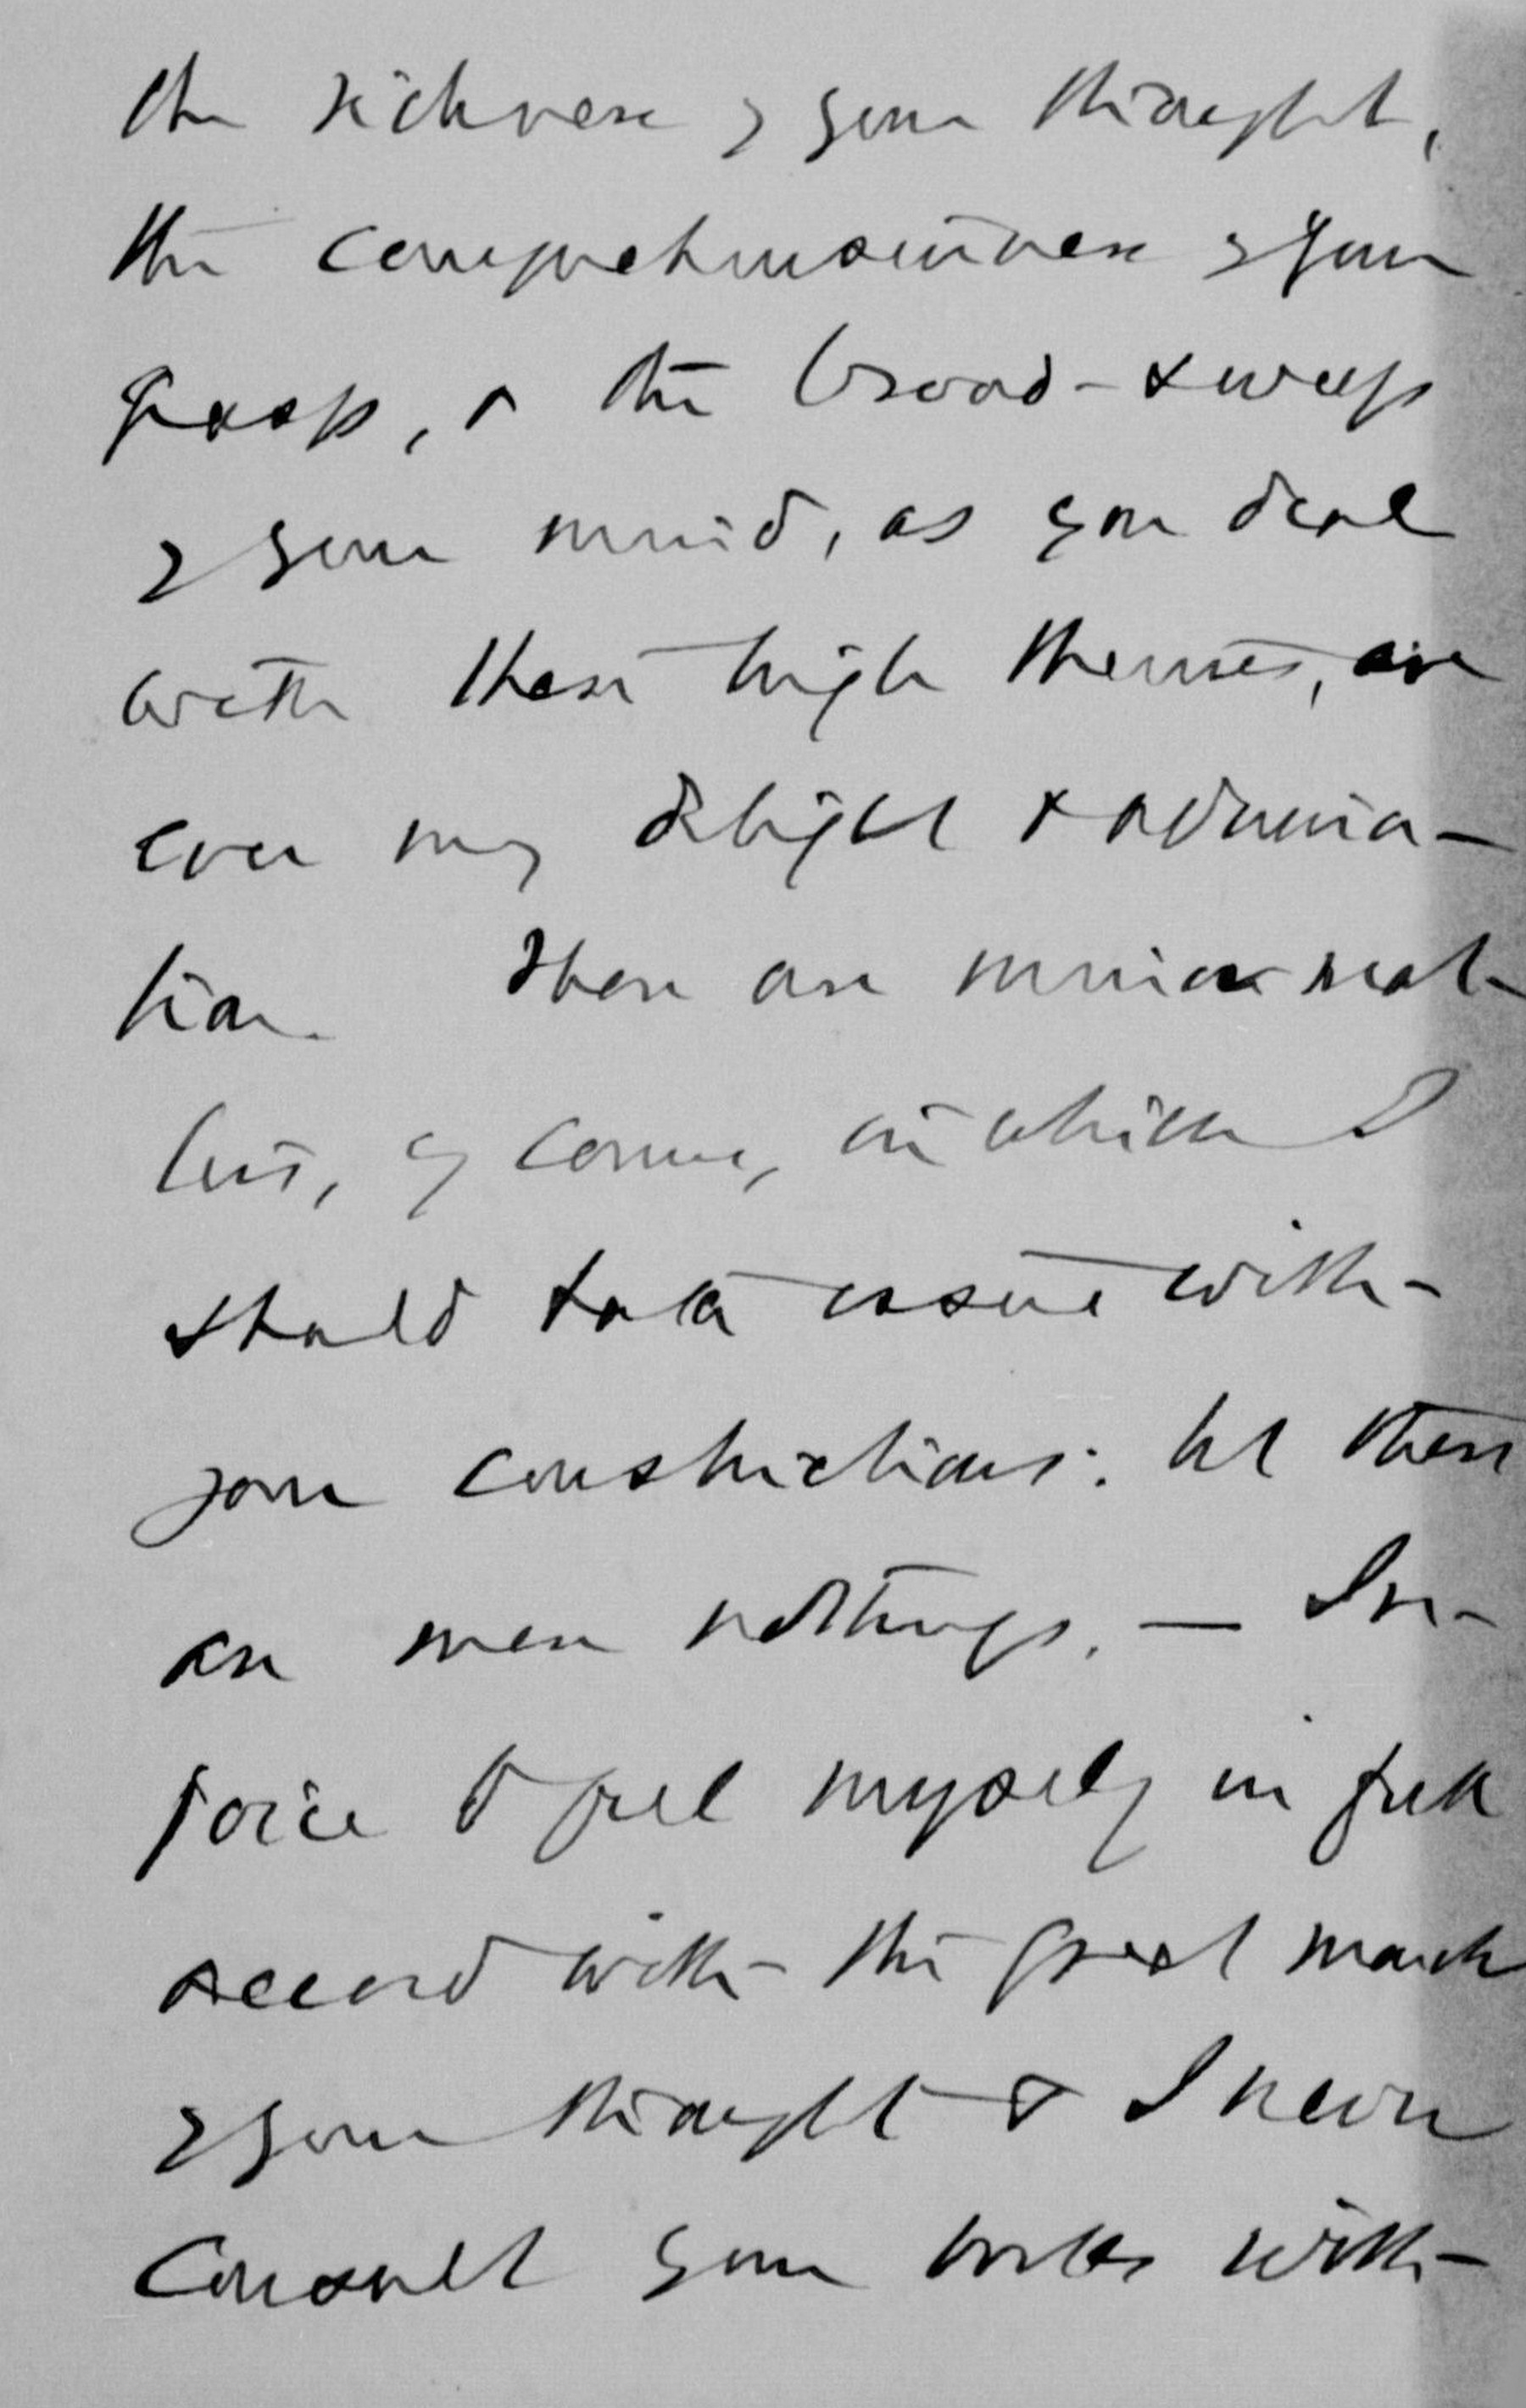 the richness of your thought,
the comprehensiveness of your
grasp, & the broad-sweep
of your mind, as you deal
with these high themes, are
ever my delight & admira-
tion. There are minor mat-
ters, of course, in which I
should take issue with
your constructions: but these
are mere nothings. —
I feel myself in full
accord with the great march
of your thought & I never
consult your works with-